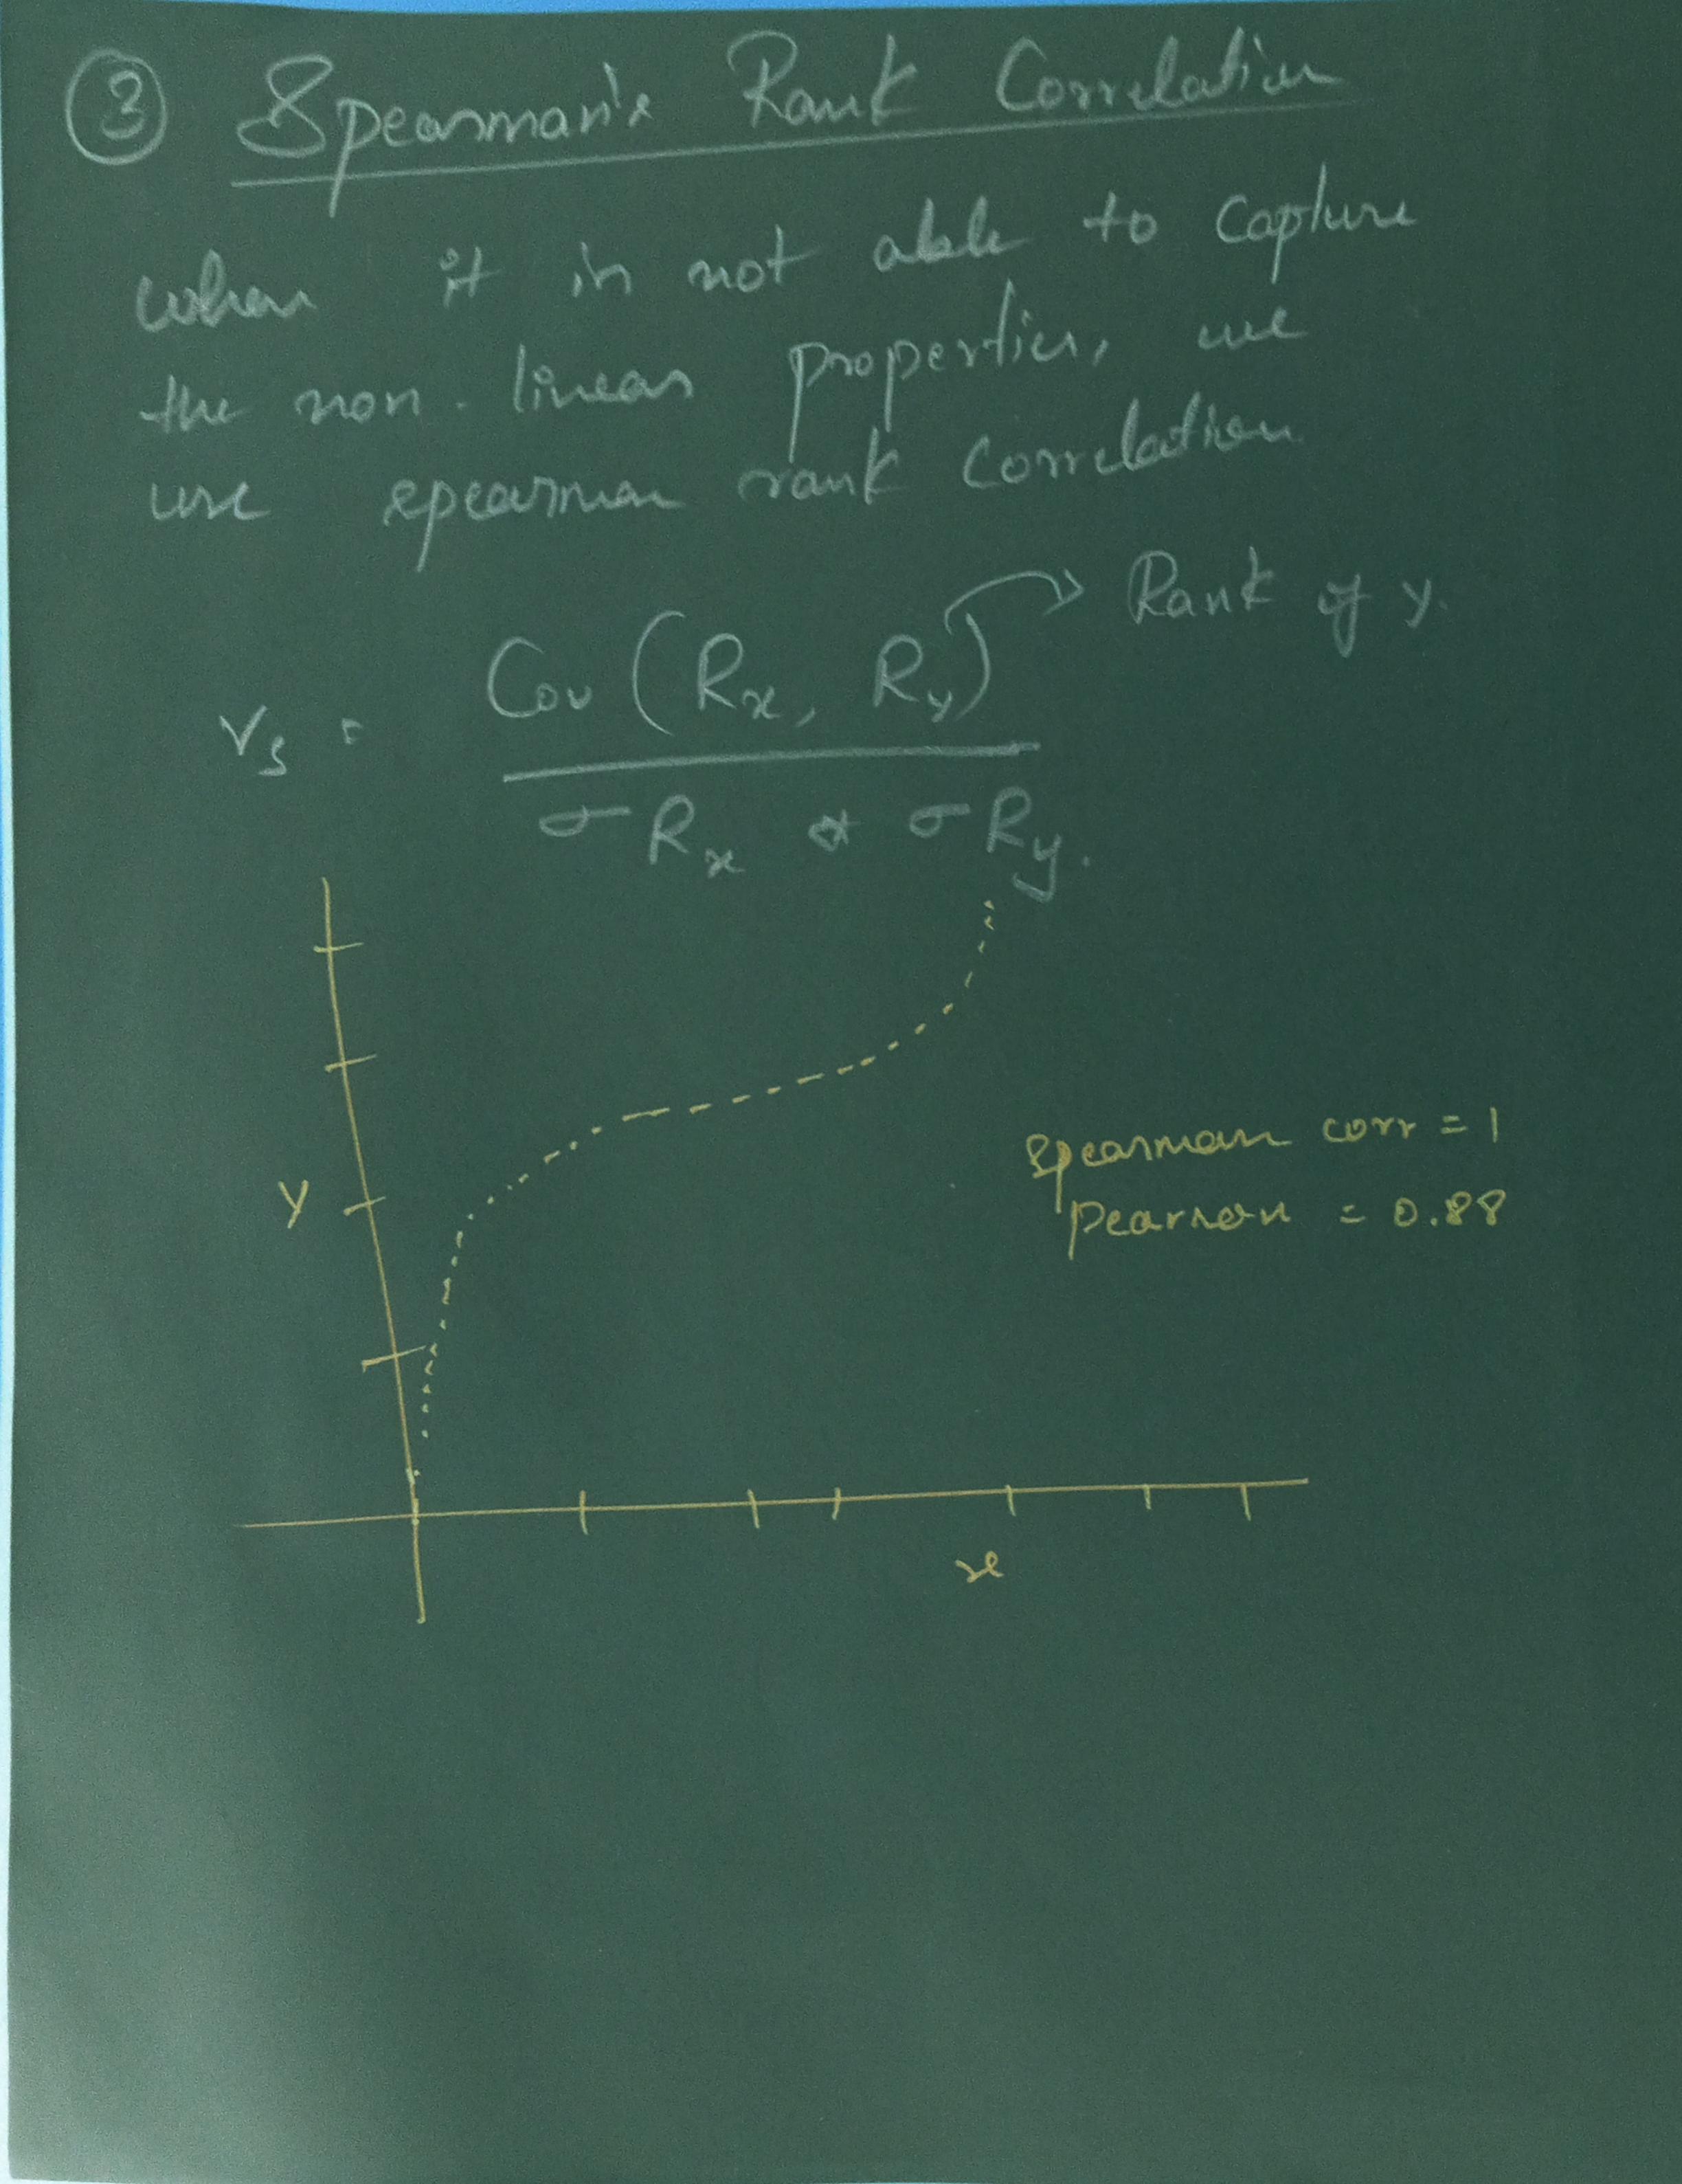 ③ Spearman's Rank Correlation
when it is not able to capture
the non-linear properties, we
use spearman rank correlation
Rank of y.
rs = Cov (Rx, Ry)
σ Rx * σ Ry.
Spearman corr = 1
Y
pearson = 0.88
x